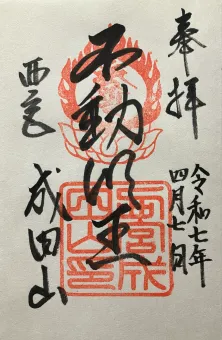 奉拝
令和七年
四月七日
不動明王
西宮
成田山